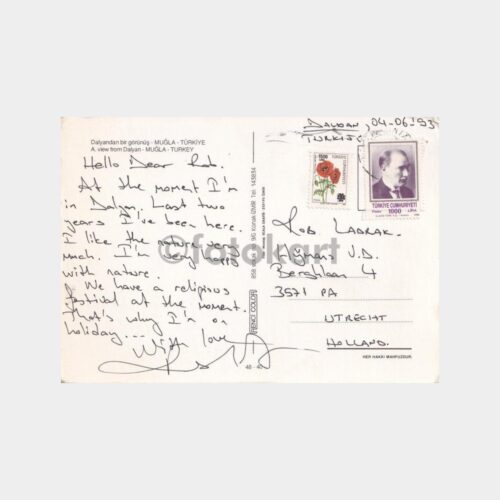 Dalyandan bir görünüş - MUĞLA - TÜRKİYE
A. view from Dalyan - MUĞLA - TURKEY
Hello Dear Rob.
At the moment I'm
in Dalyan. Last two
years I've been here.
I like the nature very
much. I'm very happy
with nature.
We have a religious
festival at the moment.
That's why I'm on
holiday...
With love
DALYAN, 04-06-'93
TÜRKİYE
TÜRKİYE CUMHURİYETİ
1000 LİRA
ROB LABRAK.
BERGHLAAN 4
3571 PA
UTRECHT
HOLLAND.
HER HAKKI MAHFUZDUR.
RENCI COLOR
48 - 40
©fotokart